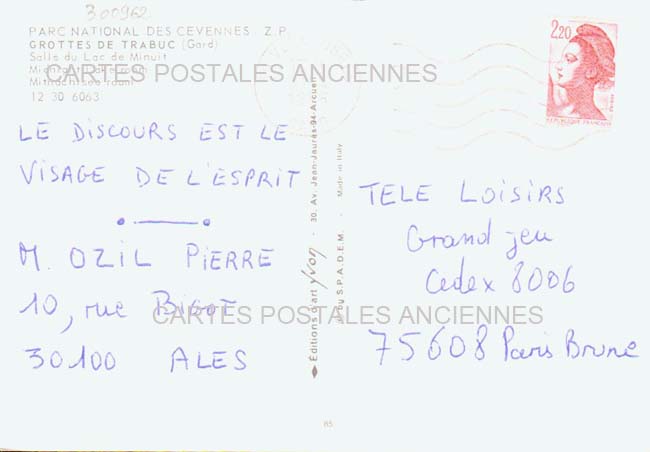 300962
PARC NATIONAL DES CEVENNES - Z.P.
GROTTES DE TRABUC (Gard)
Salle du Lac de Minuit
CARTES POSTALES ANCIENNES
12 30 6063
LE DISCOURS EST LE
VISAGE DE L'ESPRIT
M. OZIL PIERRE
10, rue BIGOT
30100 ALES
Éditions d'art Yvon - 30, Av. Jean-Jaurès-94-Arcueil
S.P.A.D.E.M. - Made in Italy
2,20
REPUBLIQUE FRANÇAISE
TELE LOISIRS
Grand jeu
Cedex 8006
75608 Paris Brune
CARTES POSTALES ANCIENNES
85